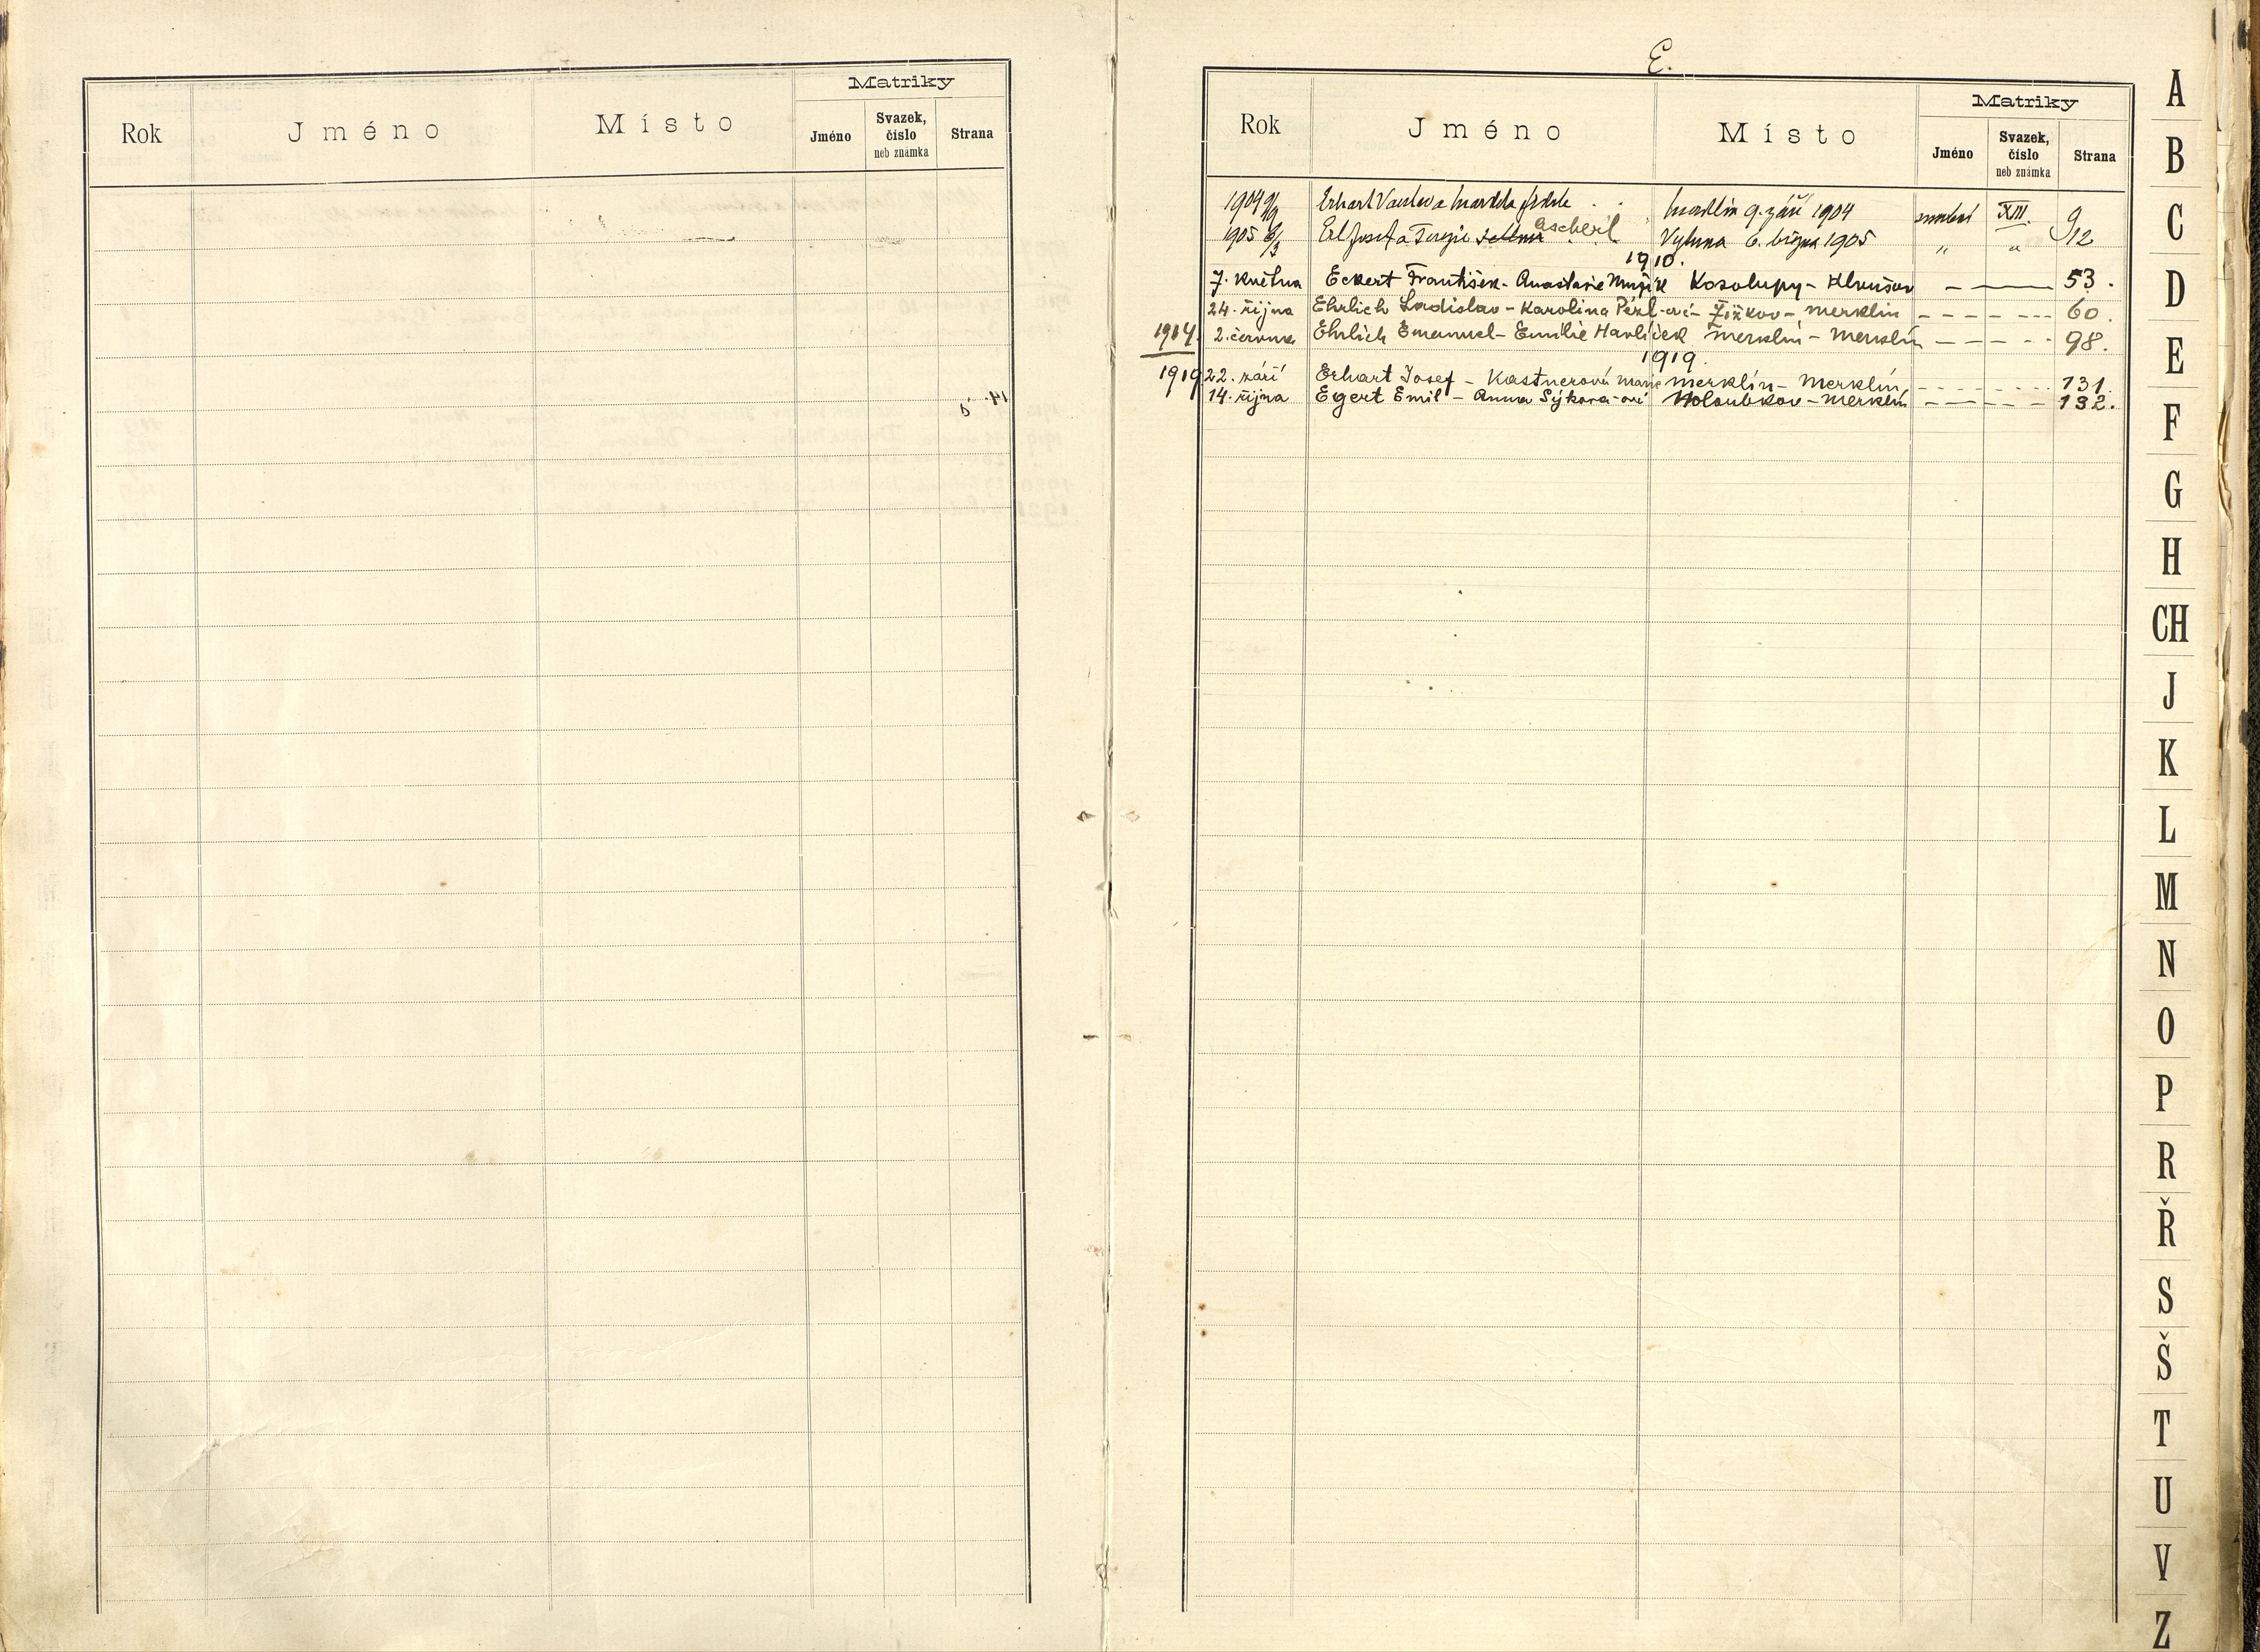 Rok Jméno Místo Matriky
Jméno Svazek, číslo neb známka Strana
E.
Rok Jméno Místo Matriky
Jméno Svazek, číslo neb známka Strana
1904 9/9 Erhart Václav a Merklín 9. září 1904 XIII. 9
1905 6/3 Erl Josef a Terezie Ascherl Vytuna 6. března 1905 " " 12
1910.
7. května Eckert František - Anastasie Kosolupy - 53.
24. října Ehrlich Ladislav - Karolina Perl-ová - Žižkov - Merklín - - - - - - - 60.
1914. 2. června Ehrlich Emanuel - Emilie Havlíček Merklín - Merklín - - - - - 98.
1919.
1919 22. září Erhart Josef - Kastnerová Marie Merklín - Merklín - - - - - - - 131.
14. října Egert Emil - Anna Sýkora-ová Holoubkov - Merklín - - - - 132.
A
B
C
D
E
F
G
H
CH
J
K
L
M
N
O
P
R
Ř
S
Š
T
U
V
Z